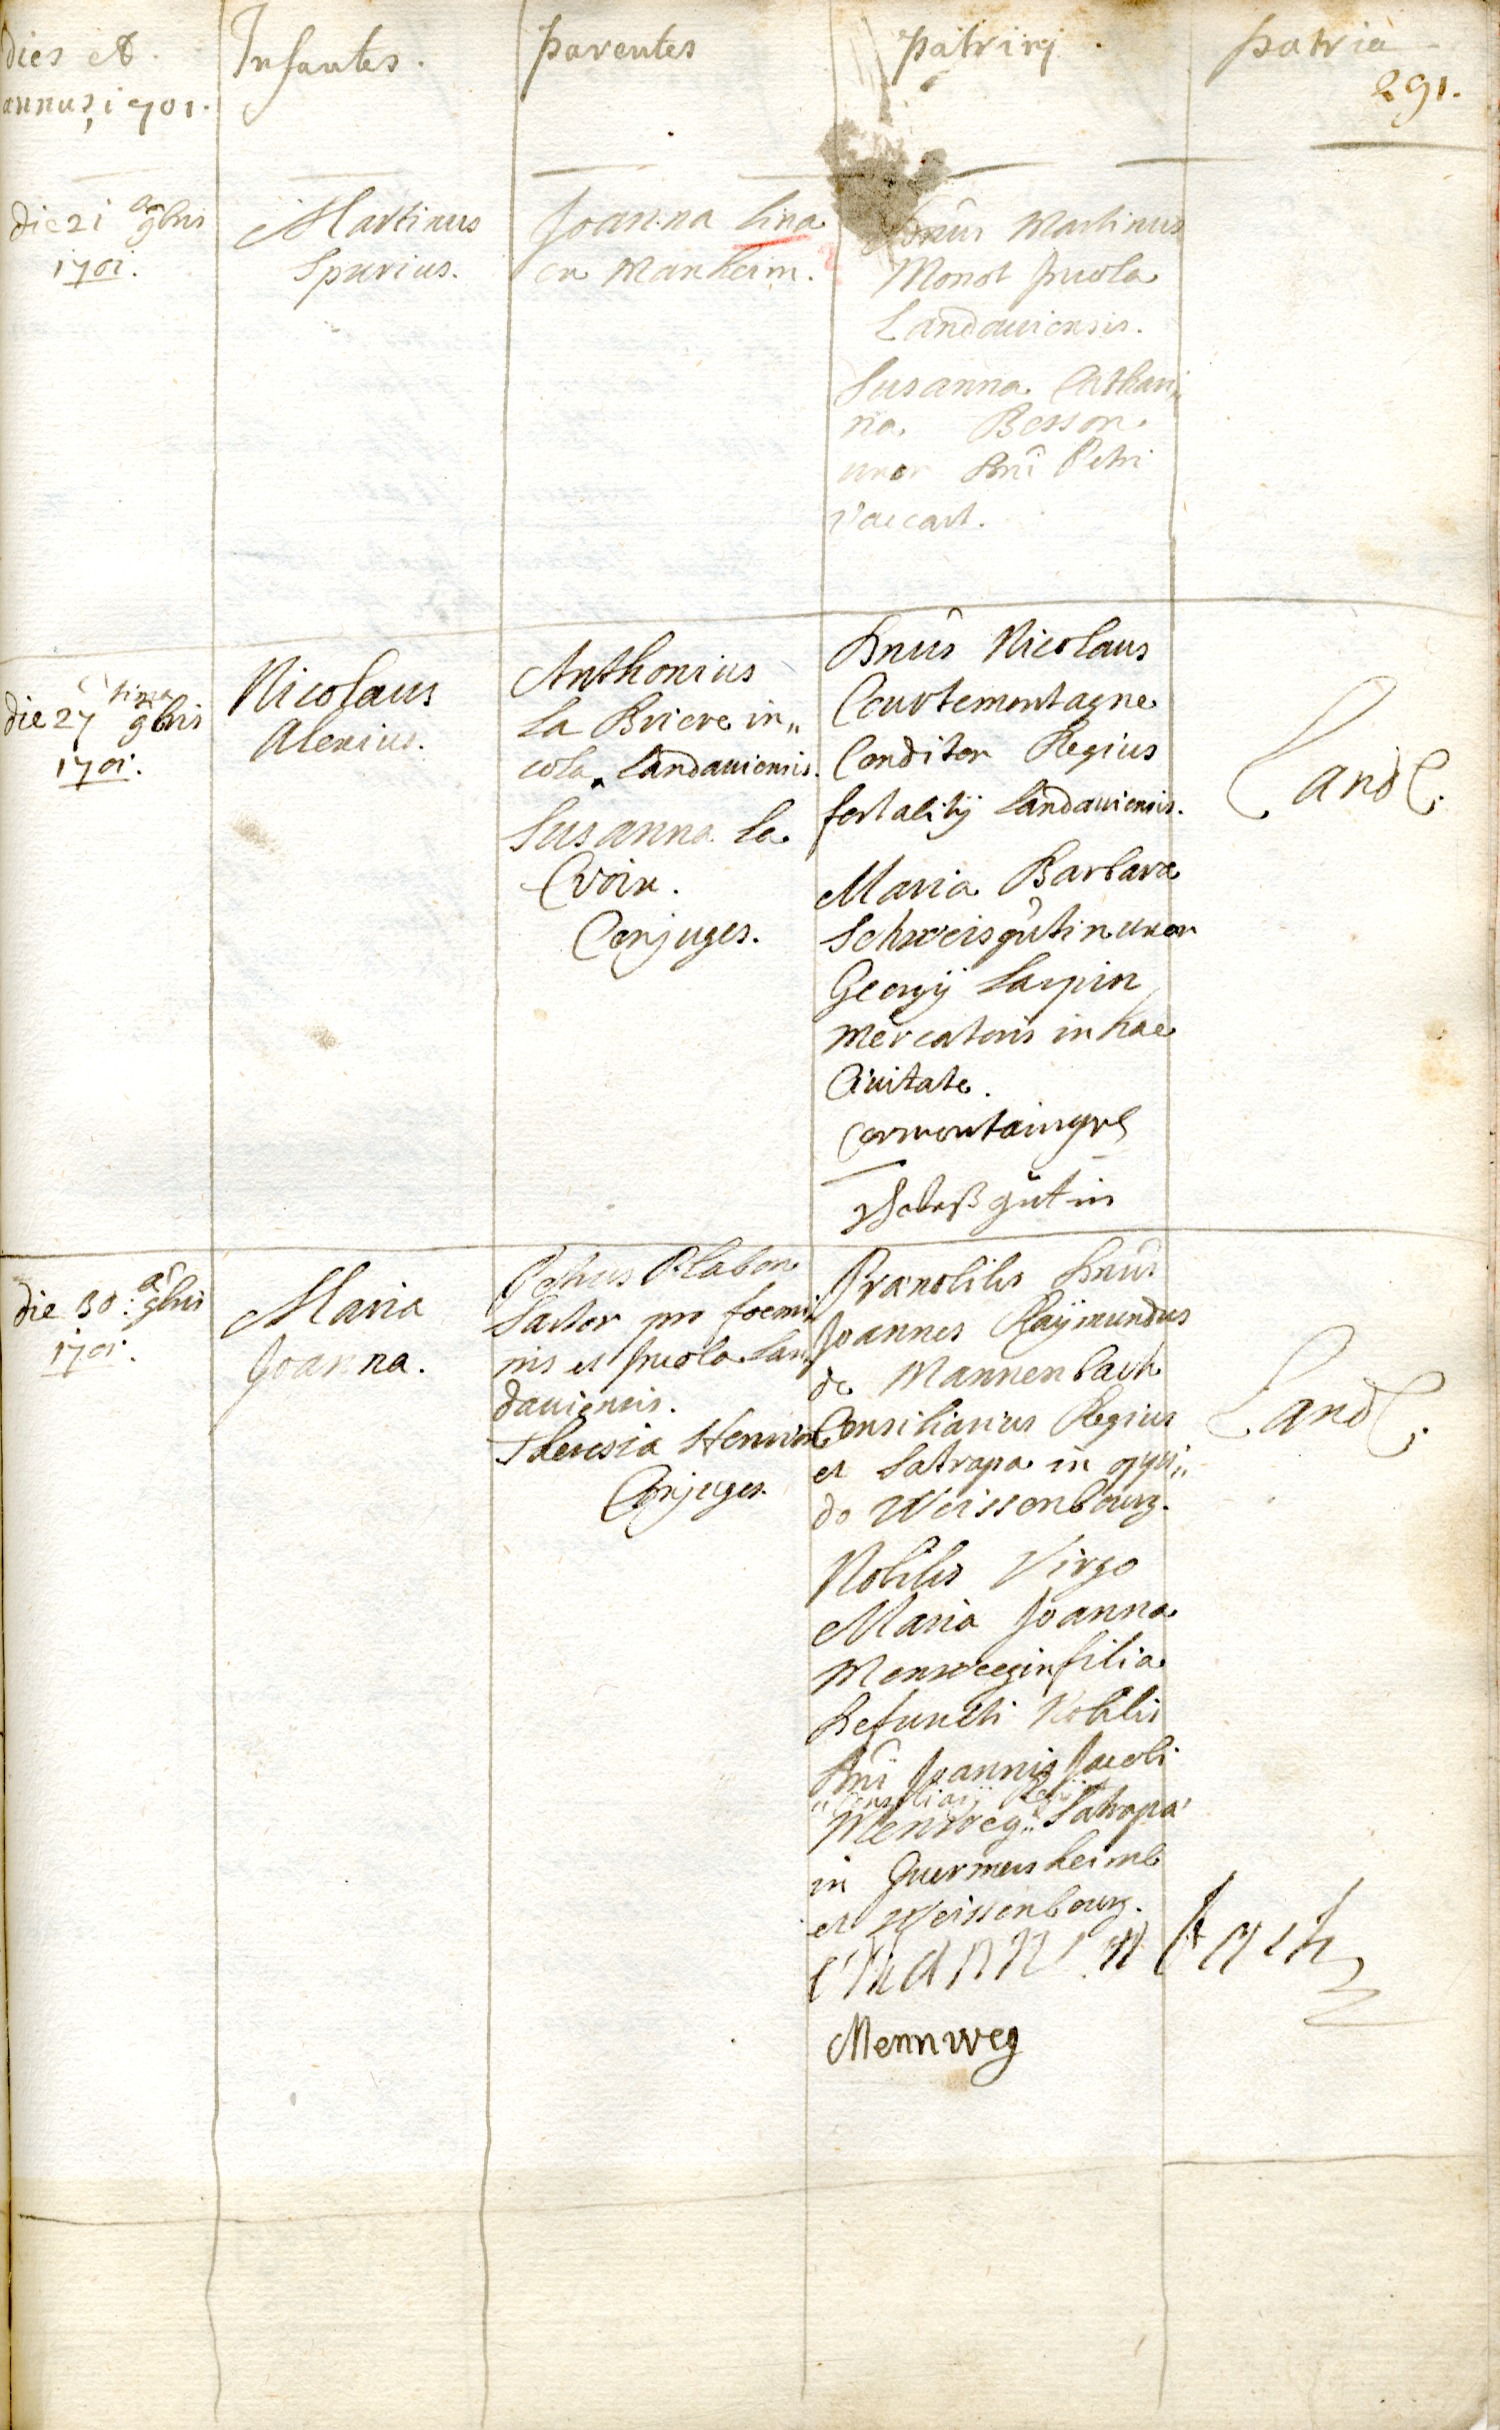 dies et
annus, 1701.
Infantes.
parentes
patrinj.
patria
291.
die 21 a 9bris
1701.
Martinus
Spurius.
Joanna lina
ex Manheim.
Dnûs Martinus
Monot Incola
Landauiensis.
Susanna Cathari„
na Besson
uxor Dnî Petri
Vaccart.
die 27 tima 9bris
1701.
Nicolaus
Alexius.
Anthonius
la Briere in„
cola Landauiensis.
Susanna la
Croix.
Conjuges.
Dnûs Nicolaus
Courtemontagne
Conditor Regius
fortalitij Landauiensis.
Maria Barbara
Schweisgutin uxor
Georgij Laspin
mercatoris in hac
Ciuitate.
Cormontaingne
gutin
Land.
die 30: a 9bris
1701.
Maria
Joanna.
Petrus Rlabon
Sartor pro foemi„
nis et Incola Lan„
dauiensis.
Theresia Henrion
Conjuges.
Prænobilis Dnûs
Joannes Raÿmundus
de Mannenbach
Consiliarius Regius
et Satrapa in oppi„
do Weissenbourg.
Nobilis Virgo
Maria Joanna
Menweegin filia
Defuncti Nobilis
Dnî Joannis Jacobi
„Consiliarij Regij
Menweg„ Satrapa
in Guermersheimb
et Weissenbourg.
Mannenbach
Mennweg
Land.